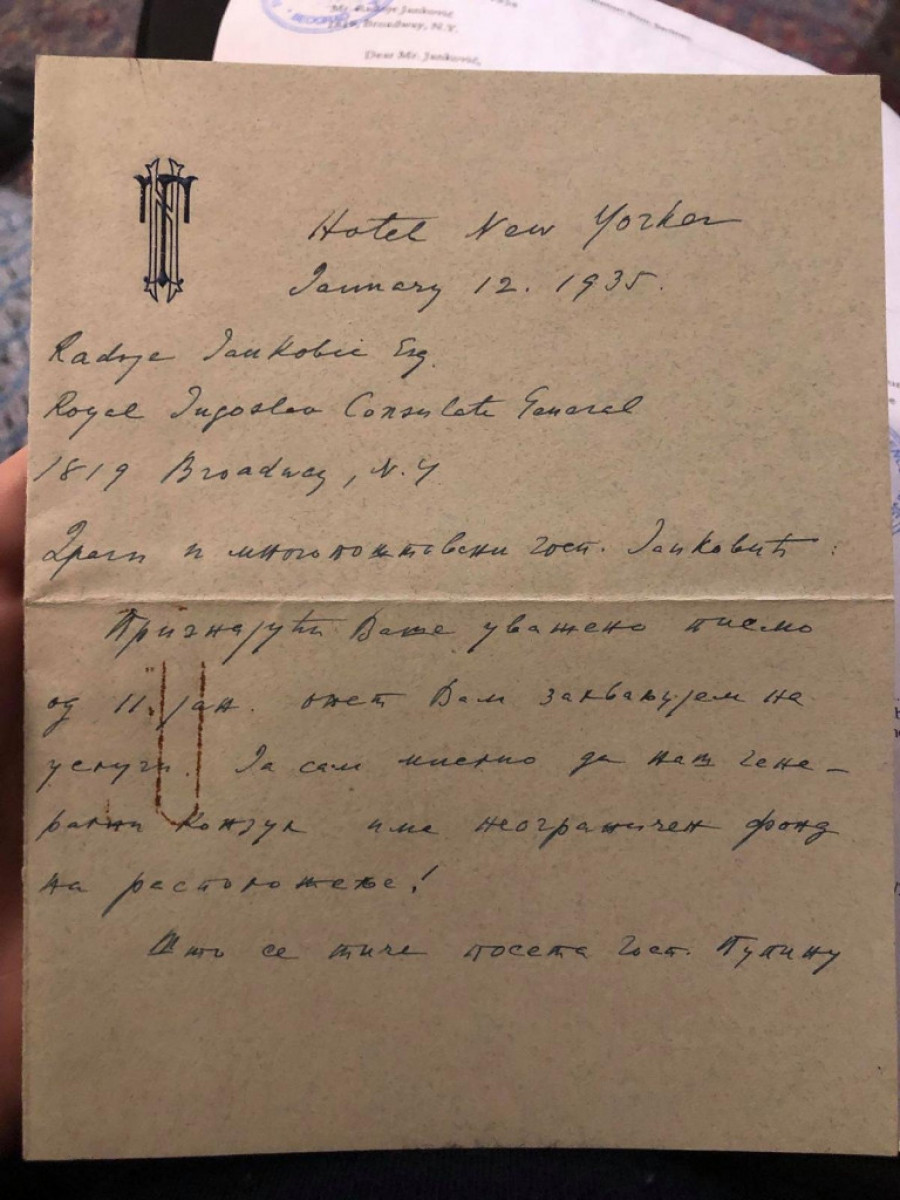 Mr. Radoje Janković
Broadway, N.Y.
Dear Mr. Janković,
Hotel New Yorker
January 12. 1935.
Radoje Jankovic Esq.
Royal Jugoslav Consulate General
1819 Broadway, N.Y
Драги и многопоштовани госп. Јанковић:
Признајући Ваше уважено писмо
од 11. јан. опет Вам захваљујем на
услузи. Ја сам мислио да наш гене-
рални конзул има неограничен фонд
на расположење!
Што се тиче посета госп. Пупину